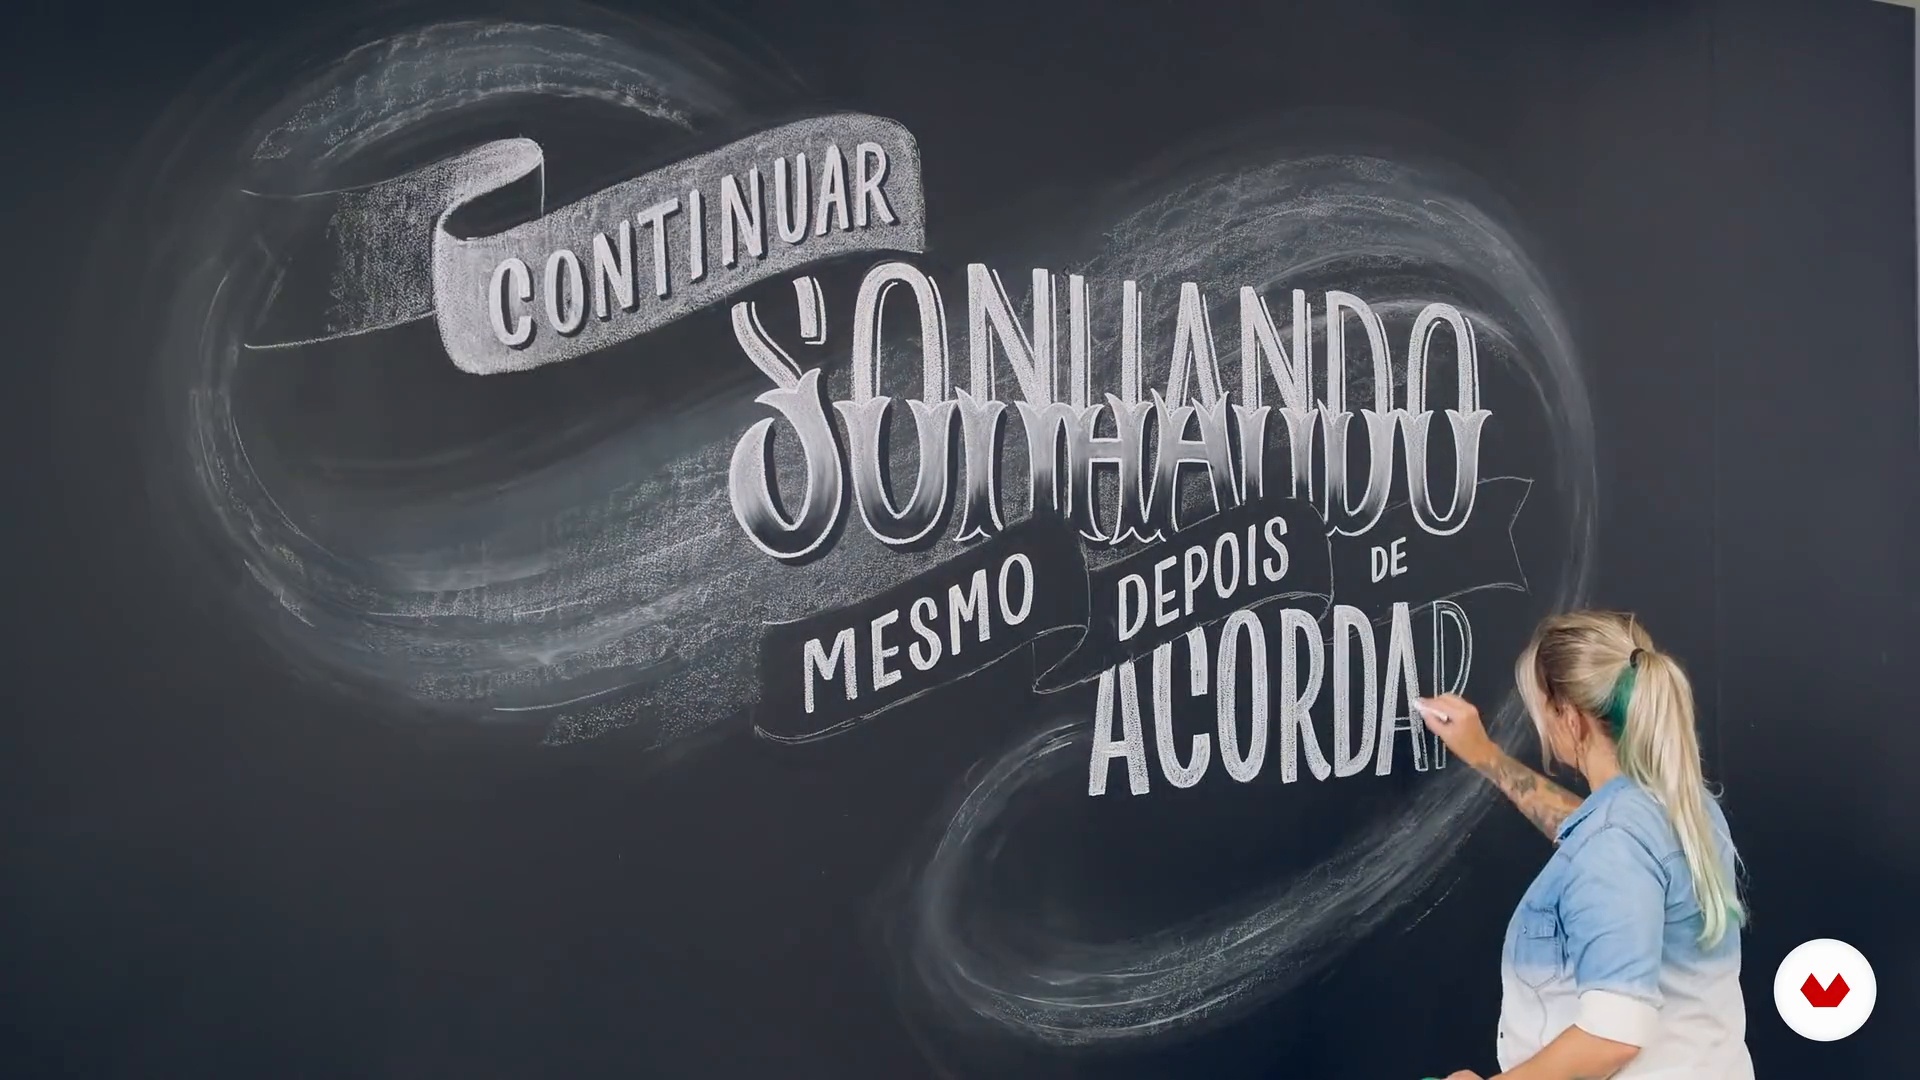 CONTINUAR
SONHANDO
MESMO DEPOIS DE
ACORDAR